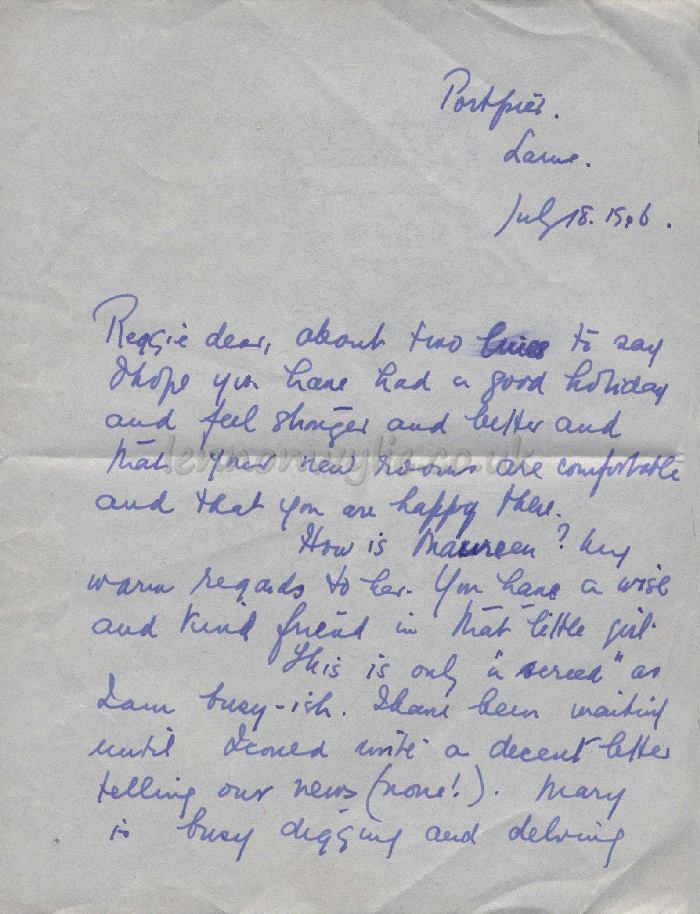 Larne.
July 18.
Reggie dear, about two lines to say
I hope you have had a good holiday
and feel stronger and better and
lennonwylie.co.uk
that your new rooms are comfortable
and that you are happy there.
How is Maureen? My
warm regards to her. You have a wise
and kind friend in that little girl
This is only "a screed" as
I am busy-ish. I have been waiting
until I could write a decent letter
telling our news (none!). Mary
is busy digging and delving